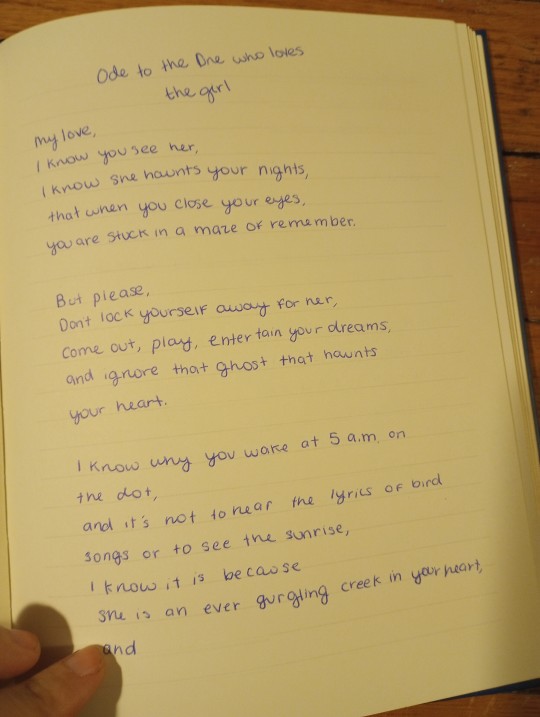 Ode to the One who loves
the girl
My love,
I know you see her,
I know she haunts your nights,
that when you close your eyes,
you are stuck in a maze of remember.
But please,
Dont lock yourself away for her,
come out, play, entertain your dreams,
and ignore that ghost that haunts
your heart.
I know why you wake at 5 a.m. on
the dot,
and it's not to hear the lyrics of bird
songs or to see the sunrise,
I know it is because
she is an ever gurgling creek in your heart,
and